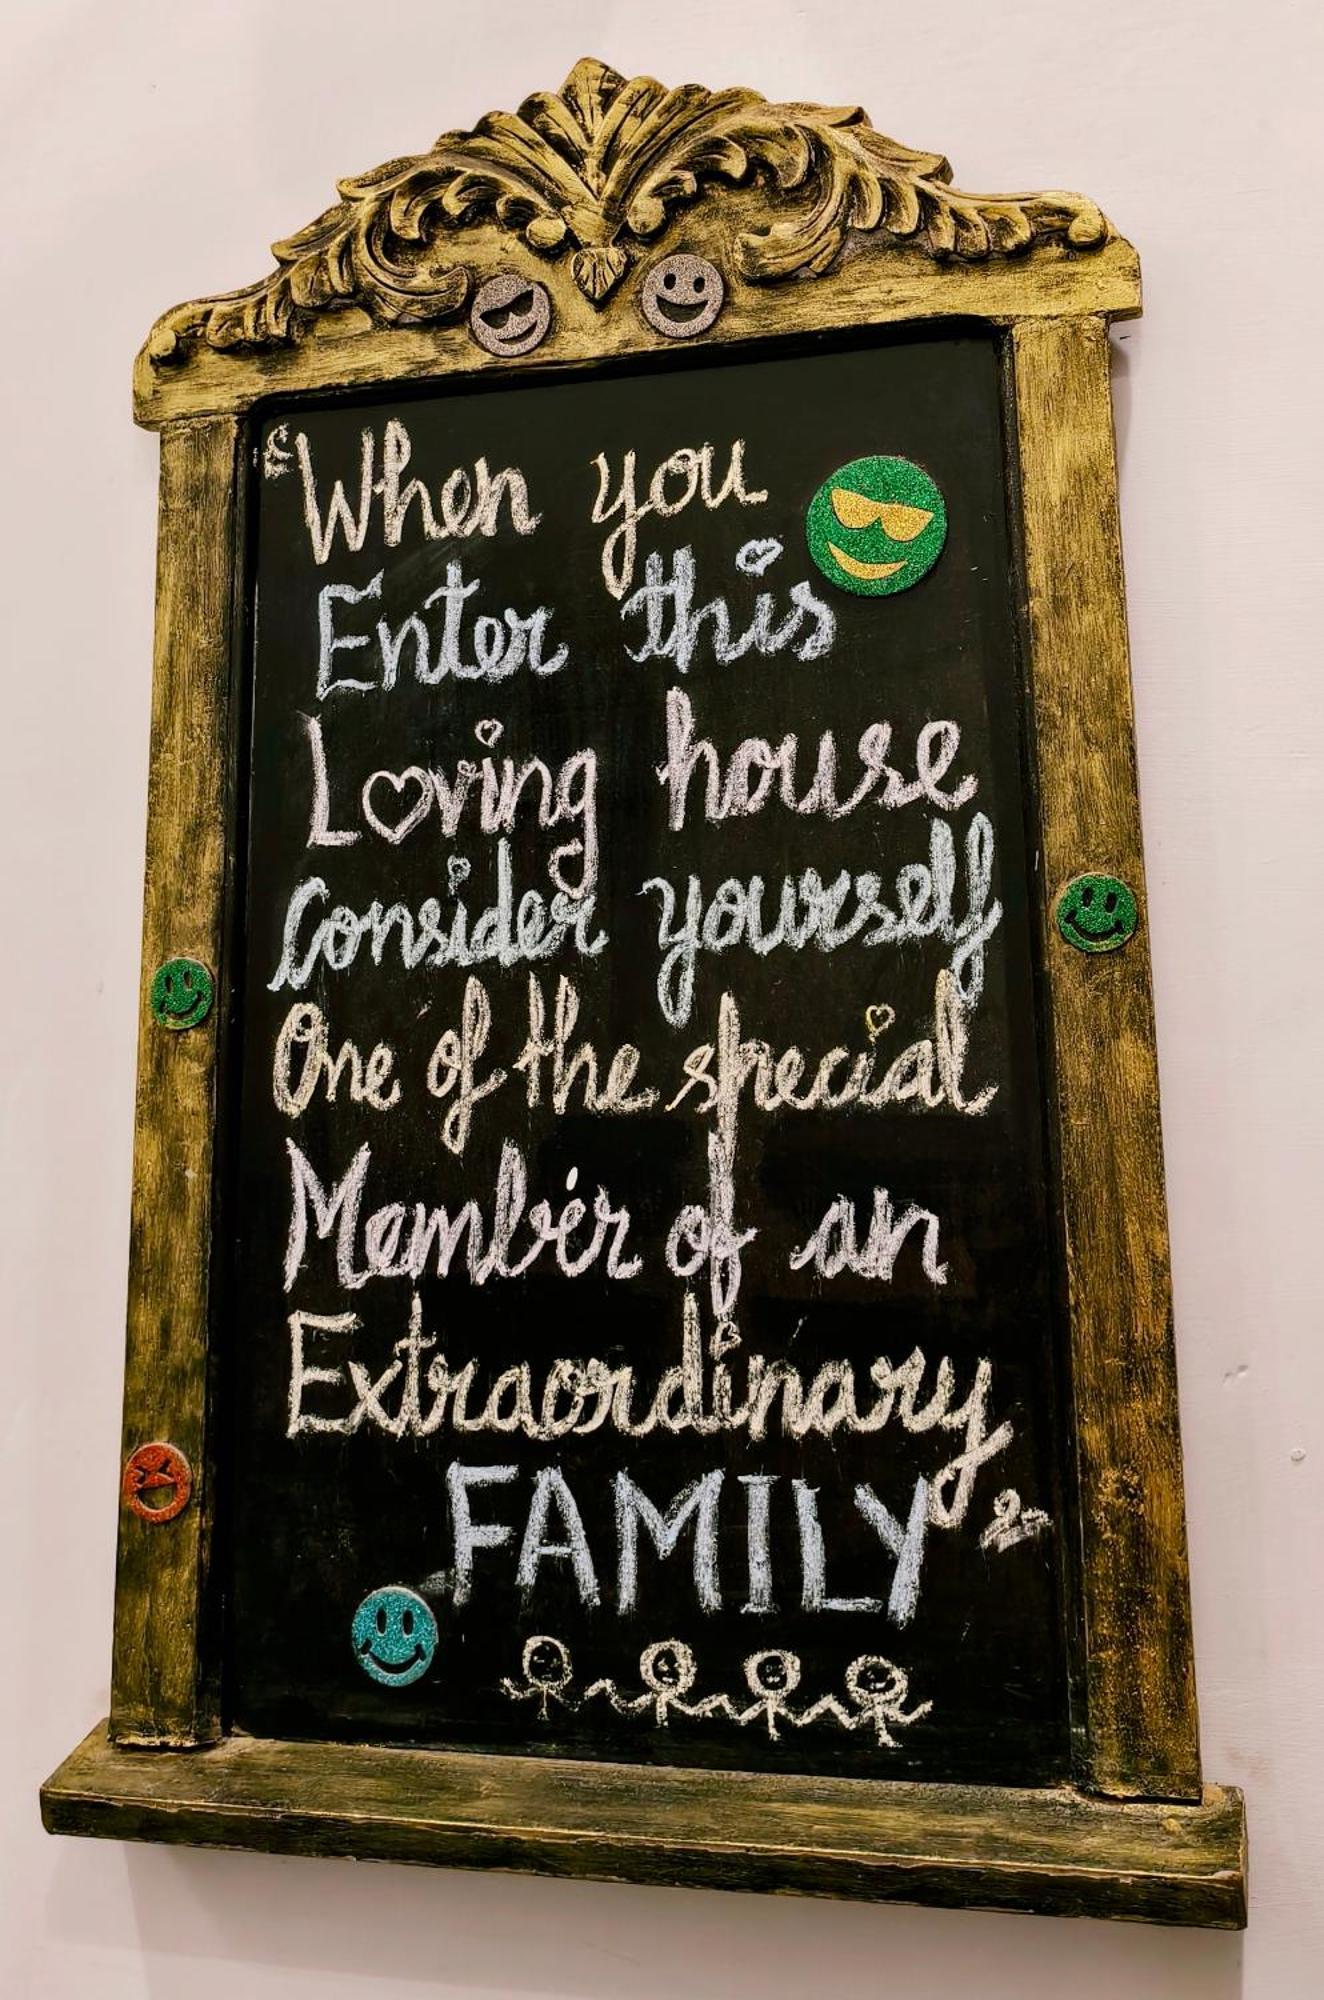 “When you
Enter this
Loving house
Consider yourself
One of the special
Member of an
Extraordinary
FAMILY”